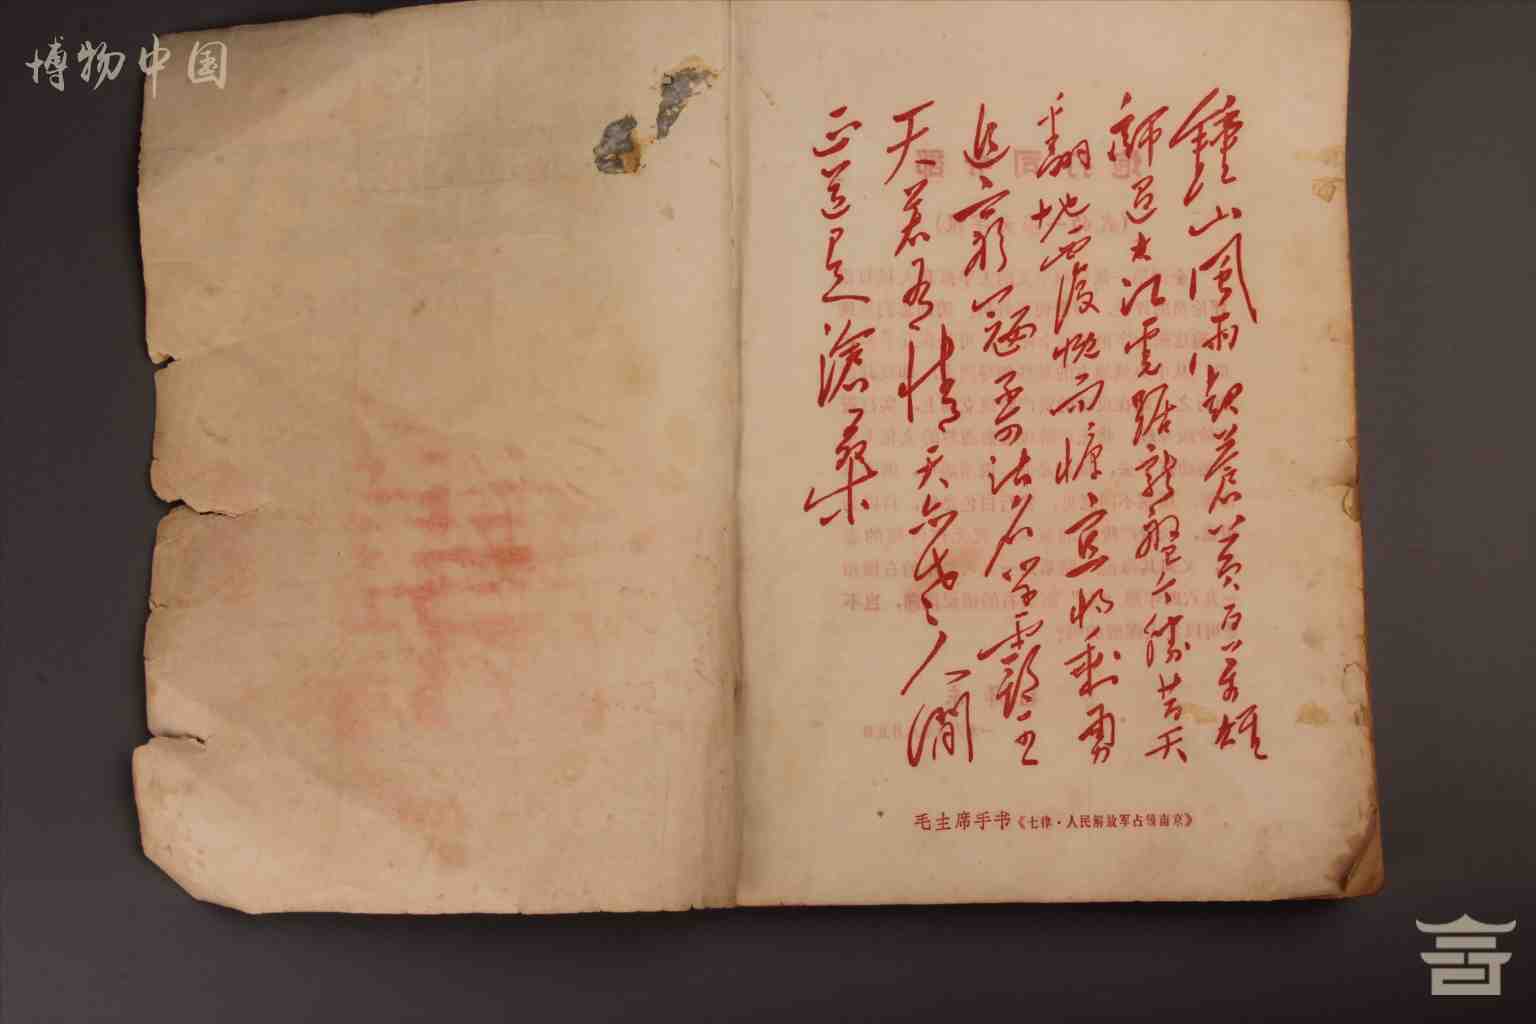 博物中国
鐘山風雨起蒼黃百萬雄
師過大江虎踞龍盤今勝昔天
翻地覆慨而慷宜將剩勇
追窮寇不可沽名學霸王
天若有情天亦老人間
正道是滄桑
毛主席手书《七律·人民解放军占领南京》